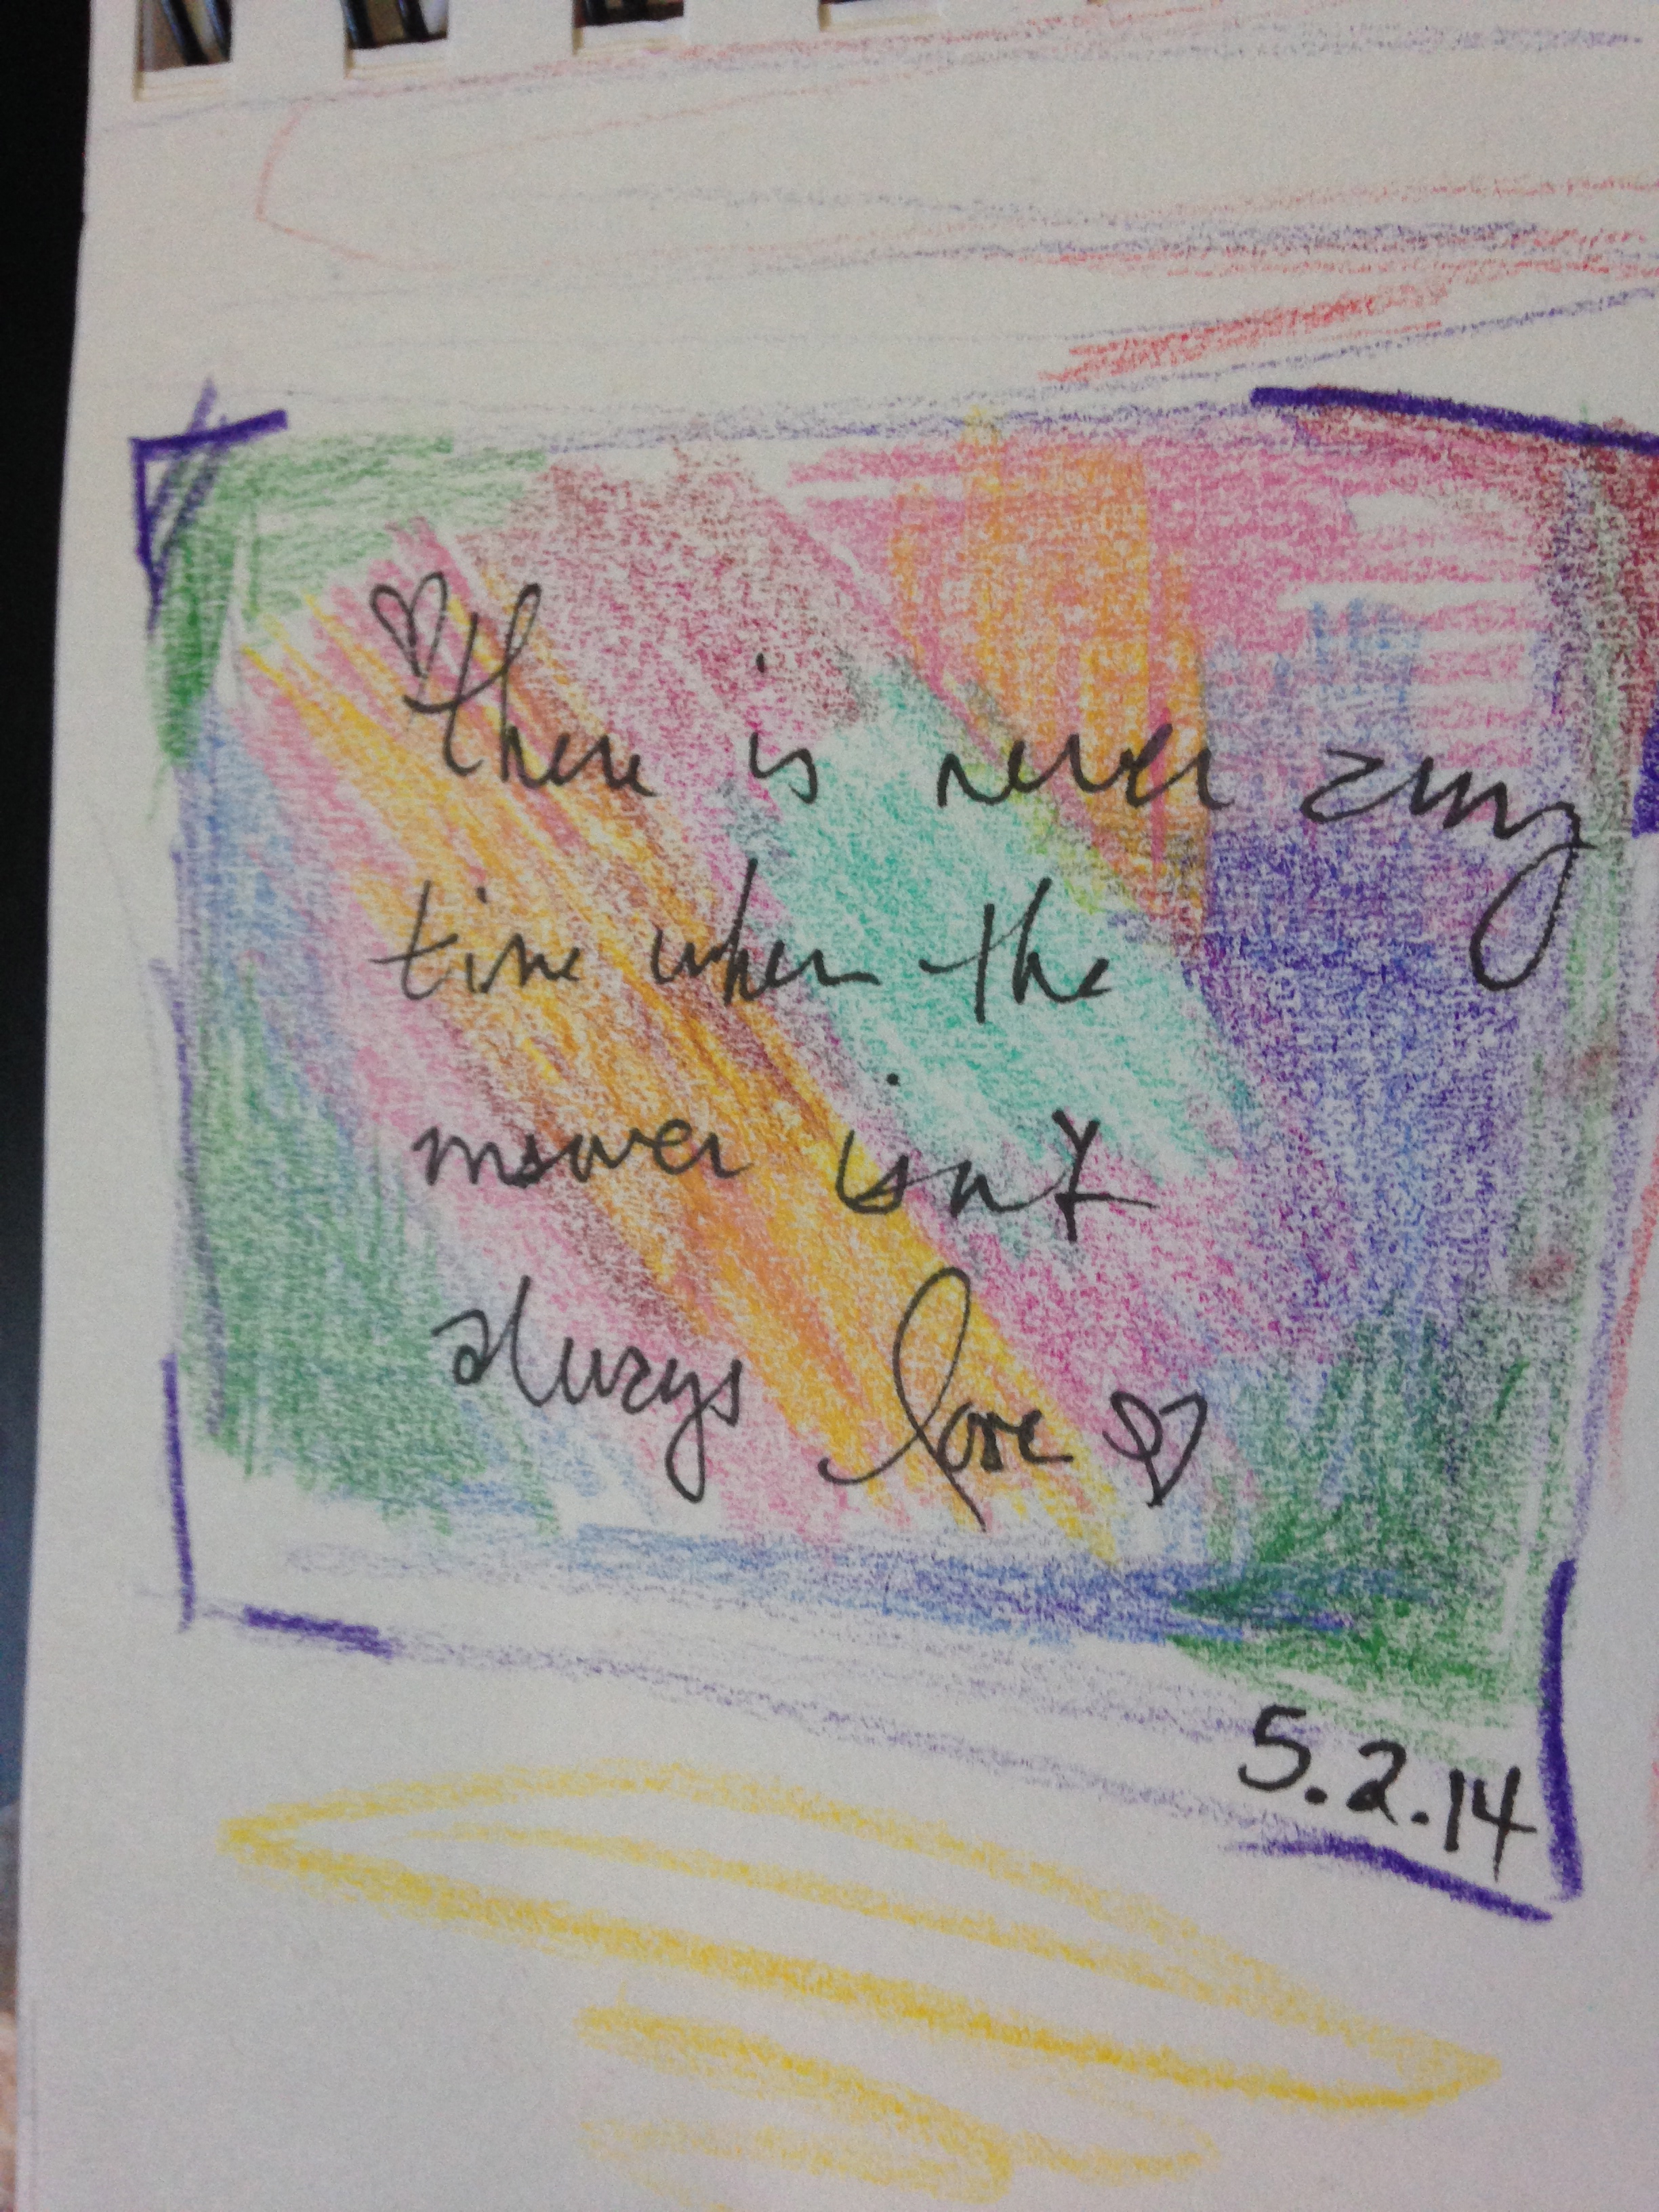 there is never any
time when the
answer isn't
always love
5.2.14